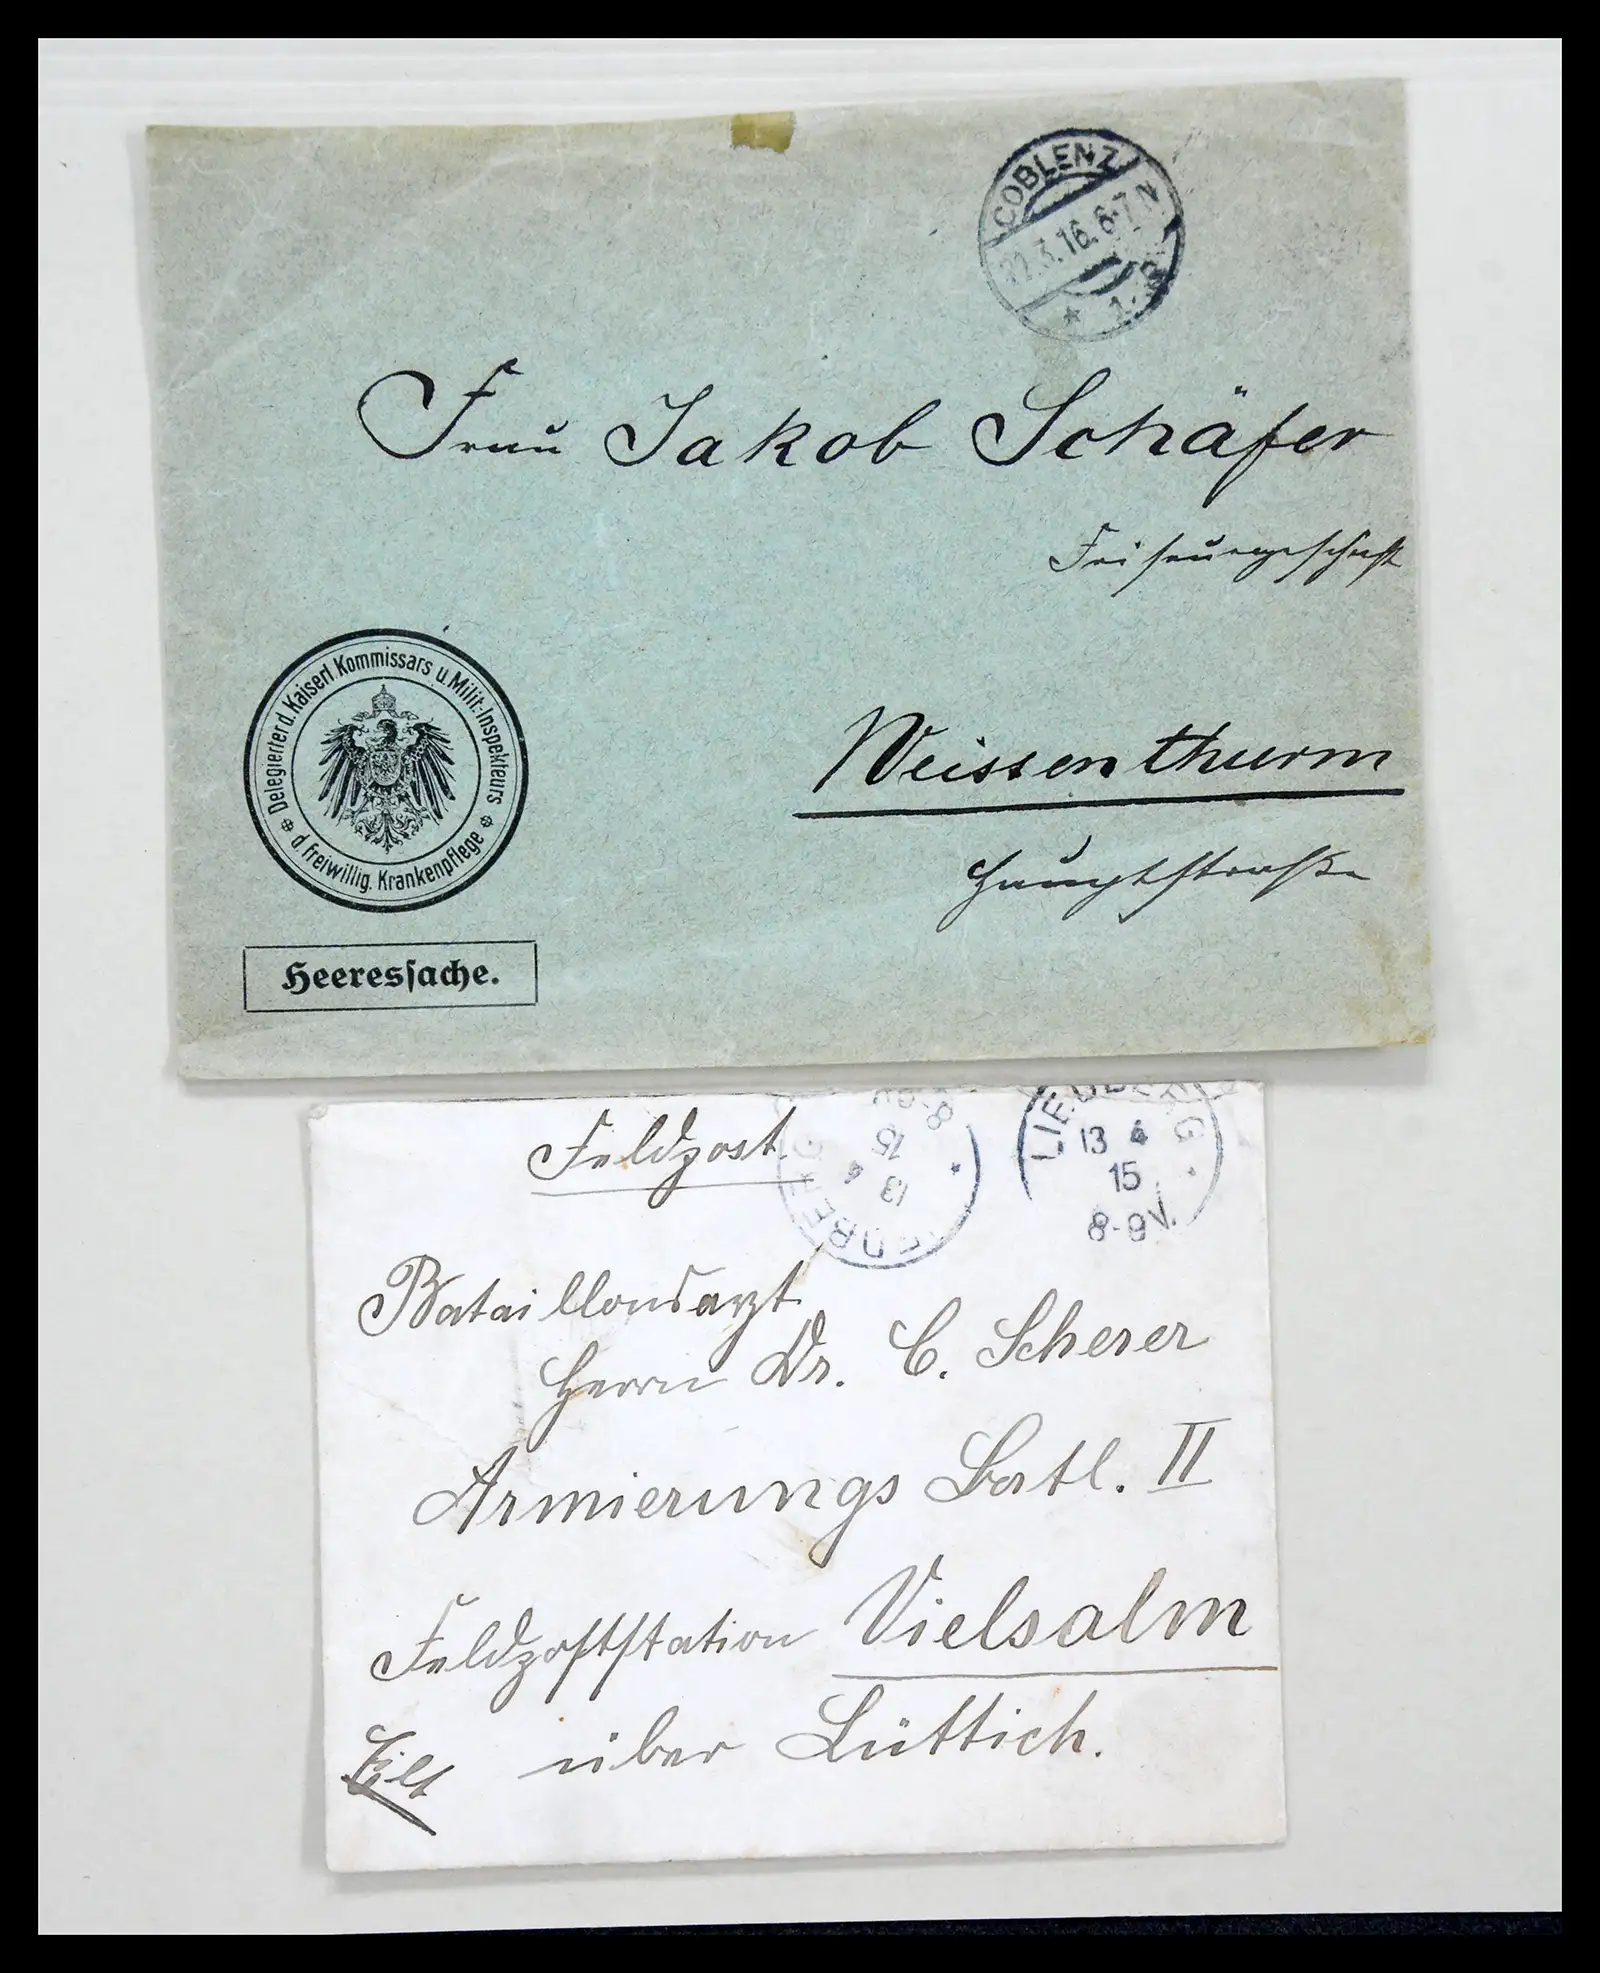 COBLENZ
22.3.16.6-7 N
* 1.
Frau Jakob Schäfer
Friseurgeschäft
Weissenthurm
Hauptstraße
Delegierter d. Kaiserl. Kommissars u. Milit.-Inspekteurs
d. freiwillig. Krankenpflege
Heeressache.
Feldpost.
LIEDBERG
13 4
15
8-9V.
LIEDBERG
13 4
15
8-9
Bataillonsarzt
Herrn Dr. C. Scherer
Armierungs Batl. II
Feldpoststation Vielsalm
Eilt über Lüttich.